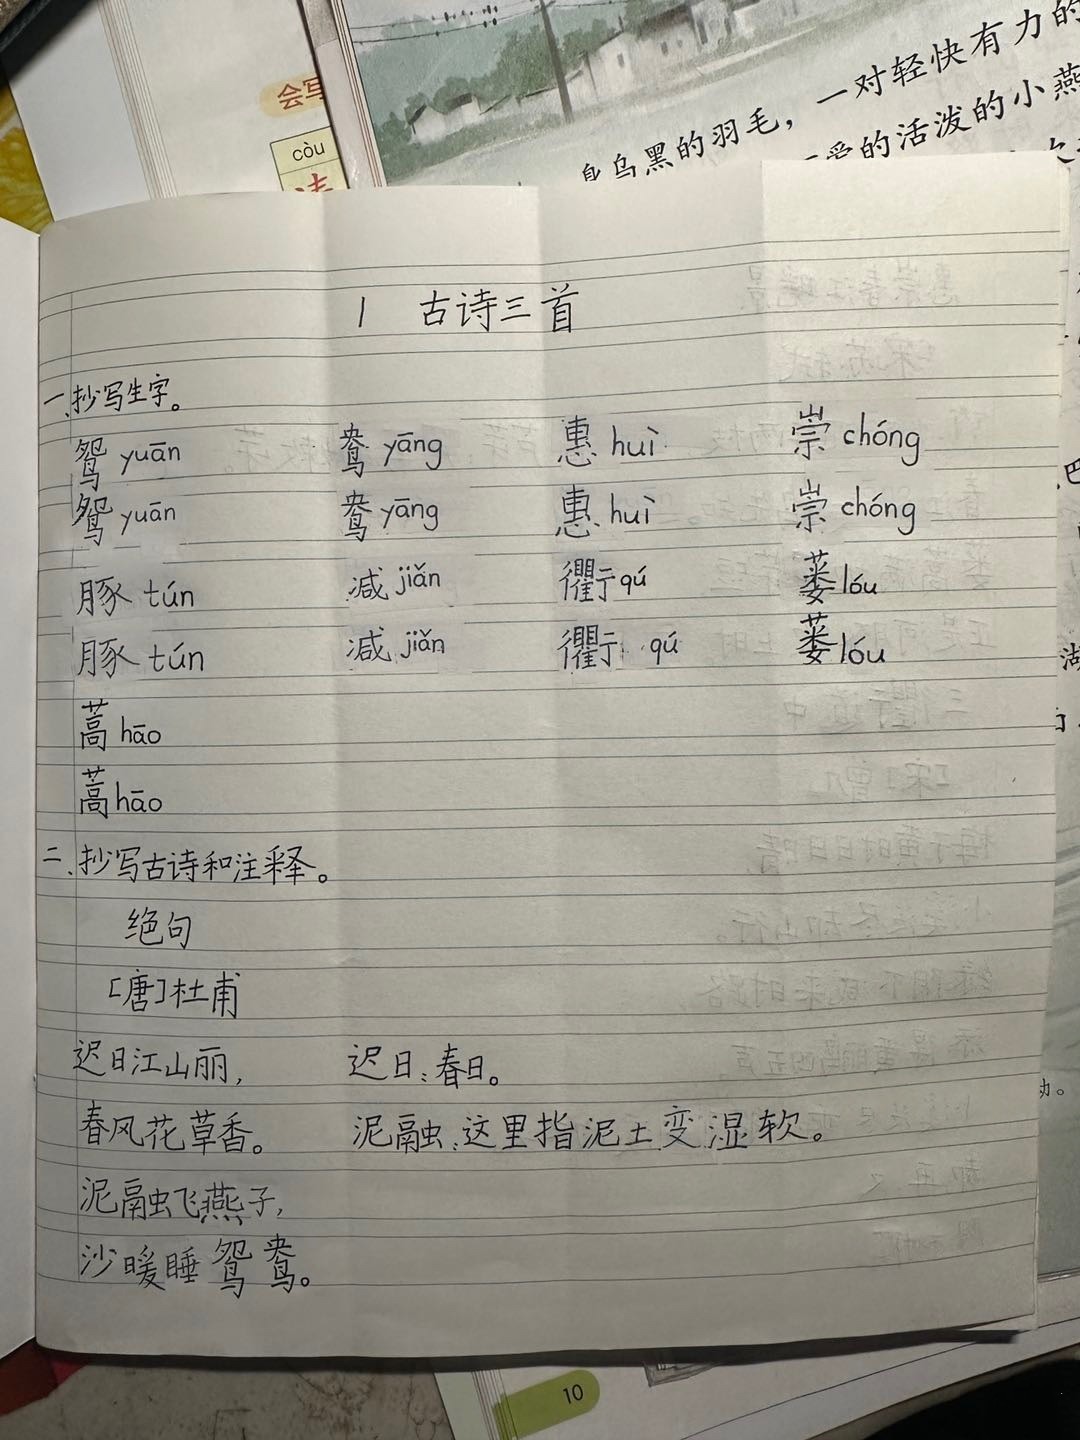 会写
còu
一对轻快有力的
身乌黑的羽毛，
爱的活泼的小燕
1 古诗三首
一、抄写生字。
鸳 yuān 鸯 yāng 惠 huì 崇 chóng
鸳 yuān 鸯 yāng 惠 huì 崇 chóng
豚 tún 减 jiǎn 衢 qú 蒌 lóu
豚 tún 减 jiǎn 衢 qú 蒌 lóu
蒿 hāo
蒿 hāo
二、抄写古诗和注释。
绝句
[唐]杜甫
迟日江山丽， 迟日：春日。
春风花草香。 泥融：这里指泥土变湿软。
泥融飞燕子，
沙暖睡鸳鸯。
湖
动。
10